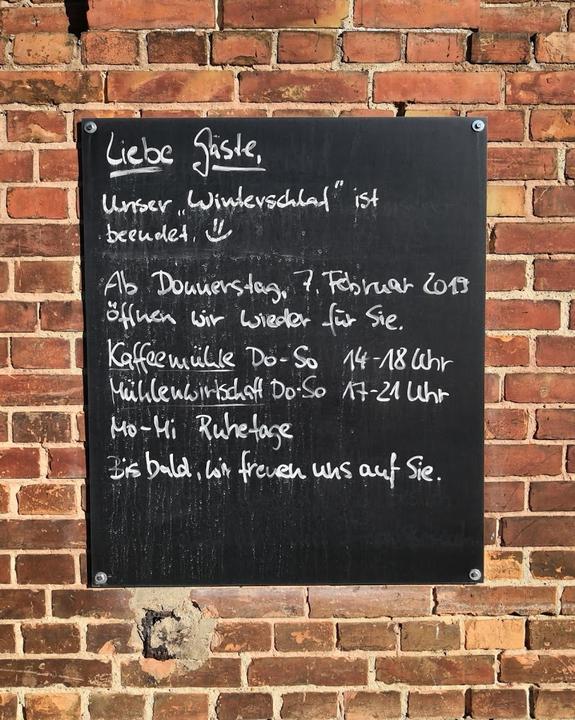 Liebe Gäste,
Unser „Winterschlaf" ist
beendet. :)
Ab Donnerstag, 7. Februar 2019
öffnen wir wieder für Sie.
Kaffeemühle Do-So 14-18 Uhr
Mühlenwirtschaft Do-So 17-21 Uhr
Mo-Mi Ruhetage
Bis bald, wir freuen uns auf Sie.